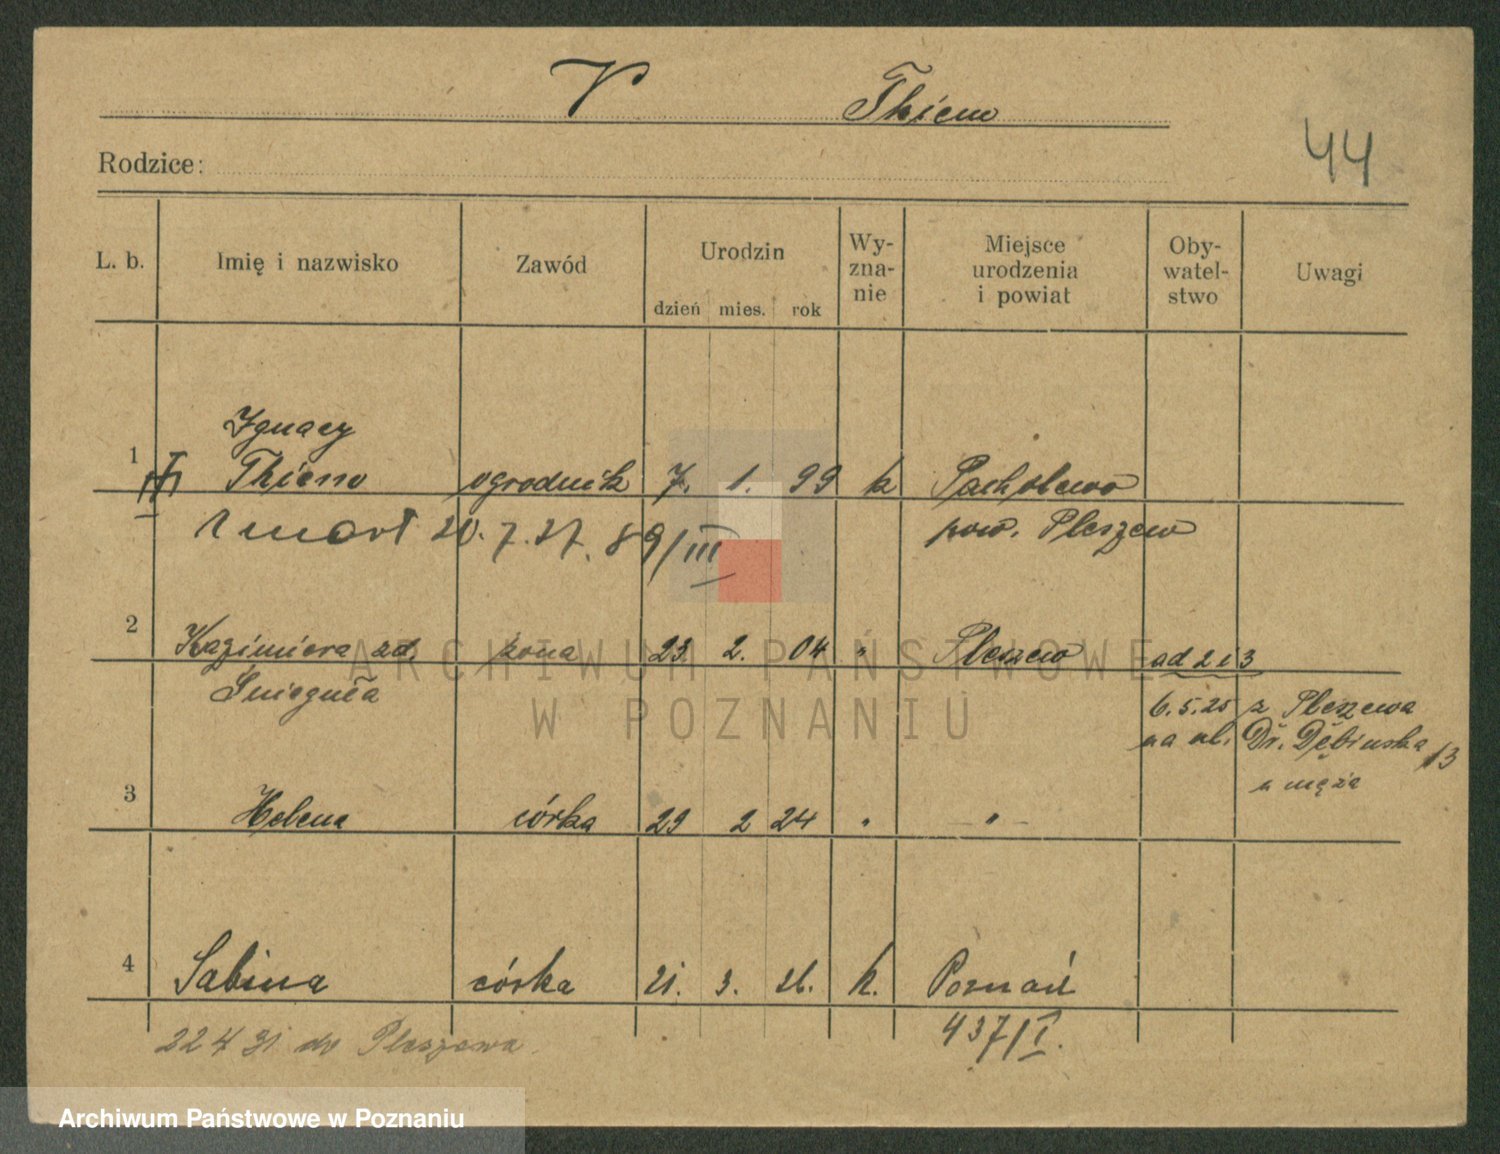 V Thiem
44
Rodzice:
L. b. Imię i nazwisko Zawód Urodzin dzień mies. rok Wy-zna-nie Miejsce urodzenia i powiat Oby-watel-stwo Uwagi
Ignacy
1 Thiem ogrodnik 7. 1. 99 k Pacholewo
zmarł 20.7.27. 89/III pow. Pleszew
2 Kazimiera zd. żona 23. 2. 04 " Pleszew ad 2 i 3
6.5.25 z Pleszewa
na ul. Dr. Dębińska 13
u męża
3 Helena córka 29 2 24 " "
4 Sabina córka 21. 3. 26. k. Poznań
437/I.
22 4 31 do Pleszewa
ARCHIWUM PAŃSTWOWE
W POZNANIU
Archiwum Państwowe w Poznaniu